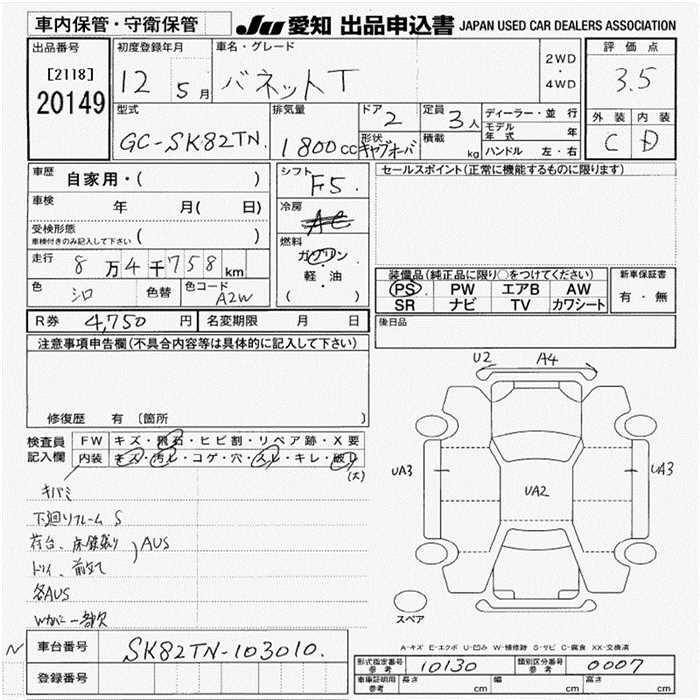 車内保管・守衛保管 JU 愛知 出品申込書 JAPAN USED CAR DEALERS ASSOCIATION
出品番号 [2118] 20149
初度登録年月 12年 5月
車名・グレード バネットT
2WD・4WD
評価点 3.5
型式 GC-SK82TN
排気量 1800cc
ドア 2
形状 キャブオーバ
定員 3人
積載 kg
ディーラー・並行
モデル年式 年
ハンドル 左・右
外装 C 内装 D
車歴 自家用・( )
車検 年 月( 日)
受検形態
車検付きのみ記入して下さい ( )
走行 8万4千758km
色 シロ 色替 色コード A2W
シフト F5
冷房 AC
燃料 ガソリン・軽・油 ( )
セールスポイント(正常に機能するものに限ります)
装備品(純正品に限り○をつけてください)
PS PW エアB AW
SR ナビ TV カワシート
新車保証書 有・無
R券 4,750円 名変期限 月 日
後日品
注意事項申告欄(不具合内容等は具体的に記入して下さい)
修復歴 有 [箇所 ]
検査員記入欄
FW キズ・飛石・ヒビ割・リペア跡・X要
内装 キズ・汚レ・コゲ・穴・スレ・キレ・破レ
(大)
キバミ
下廻りフレーム S
荷台、床鉄張り
AUS
各AUS
Wカバー一部欠
U2 A4
UA3 UA2 UA3
スペア
A-キズ E-エクボ U-凹み W-補修跡 S-サビ C-腐食 XX-交換済
N 車台番号 SK82TN-103010.
登録番号
形式指定番号 参考 10130 類別区分番号 参考 0007
車庫証明用 参考 長さ cm 幅 cm 高さ cm